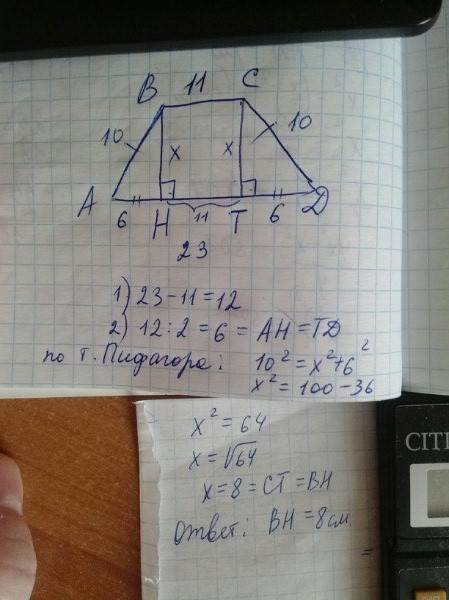 B 11 C
10 x x 10
A 6 H 11 T 6 D
23
1) 23-11=12
2) 12:2=6=AH=TD
по т. Пифагора: 10²=x²+6²
x²=100-36
x²=64
x=√64
x=8=CT=BH
Ответ: BH=8см.
CITI